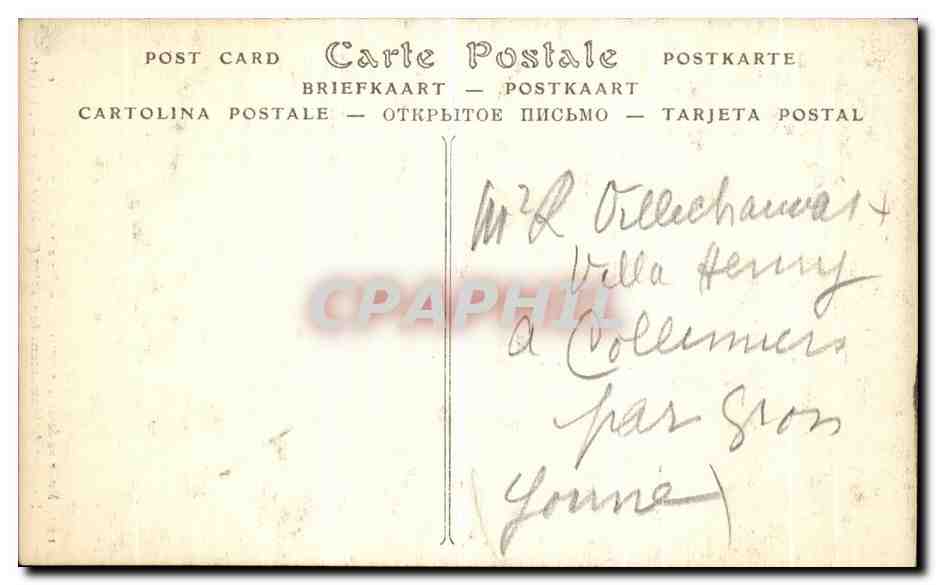 POST CARD Carte Postale POSTKARTE
BRIEFKAART — POSTKAART
CARTOLINA POSTALE — ОТКРЫТОЕ ПИСЬМО — TARJETA POSTAL
Mr R
Villa Henry
CPAPHIL
a Collemiers
par Gron
(Yonne)